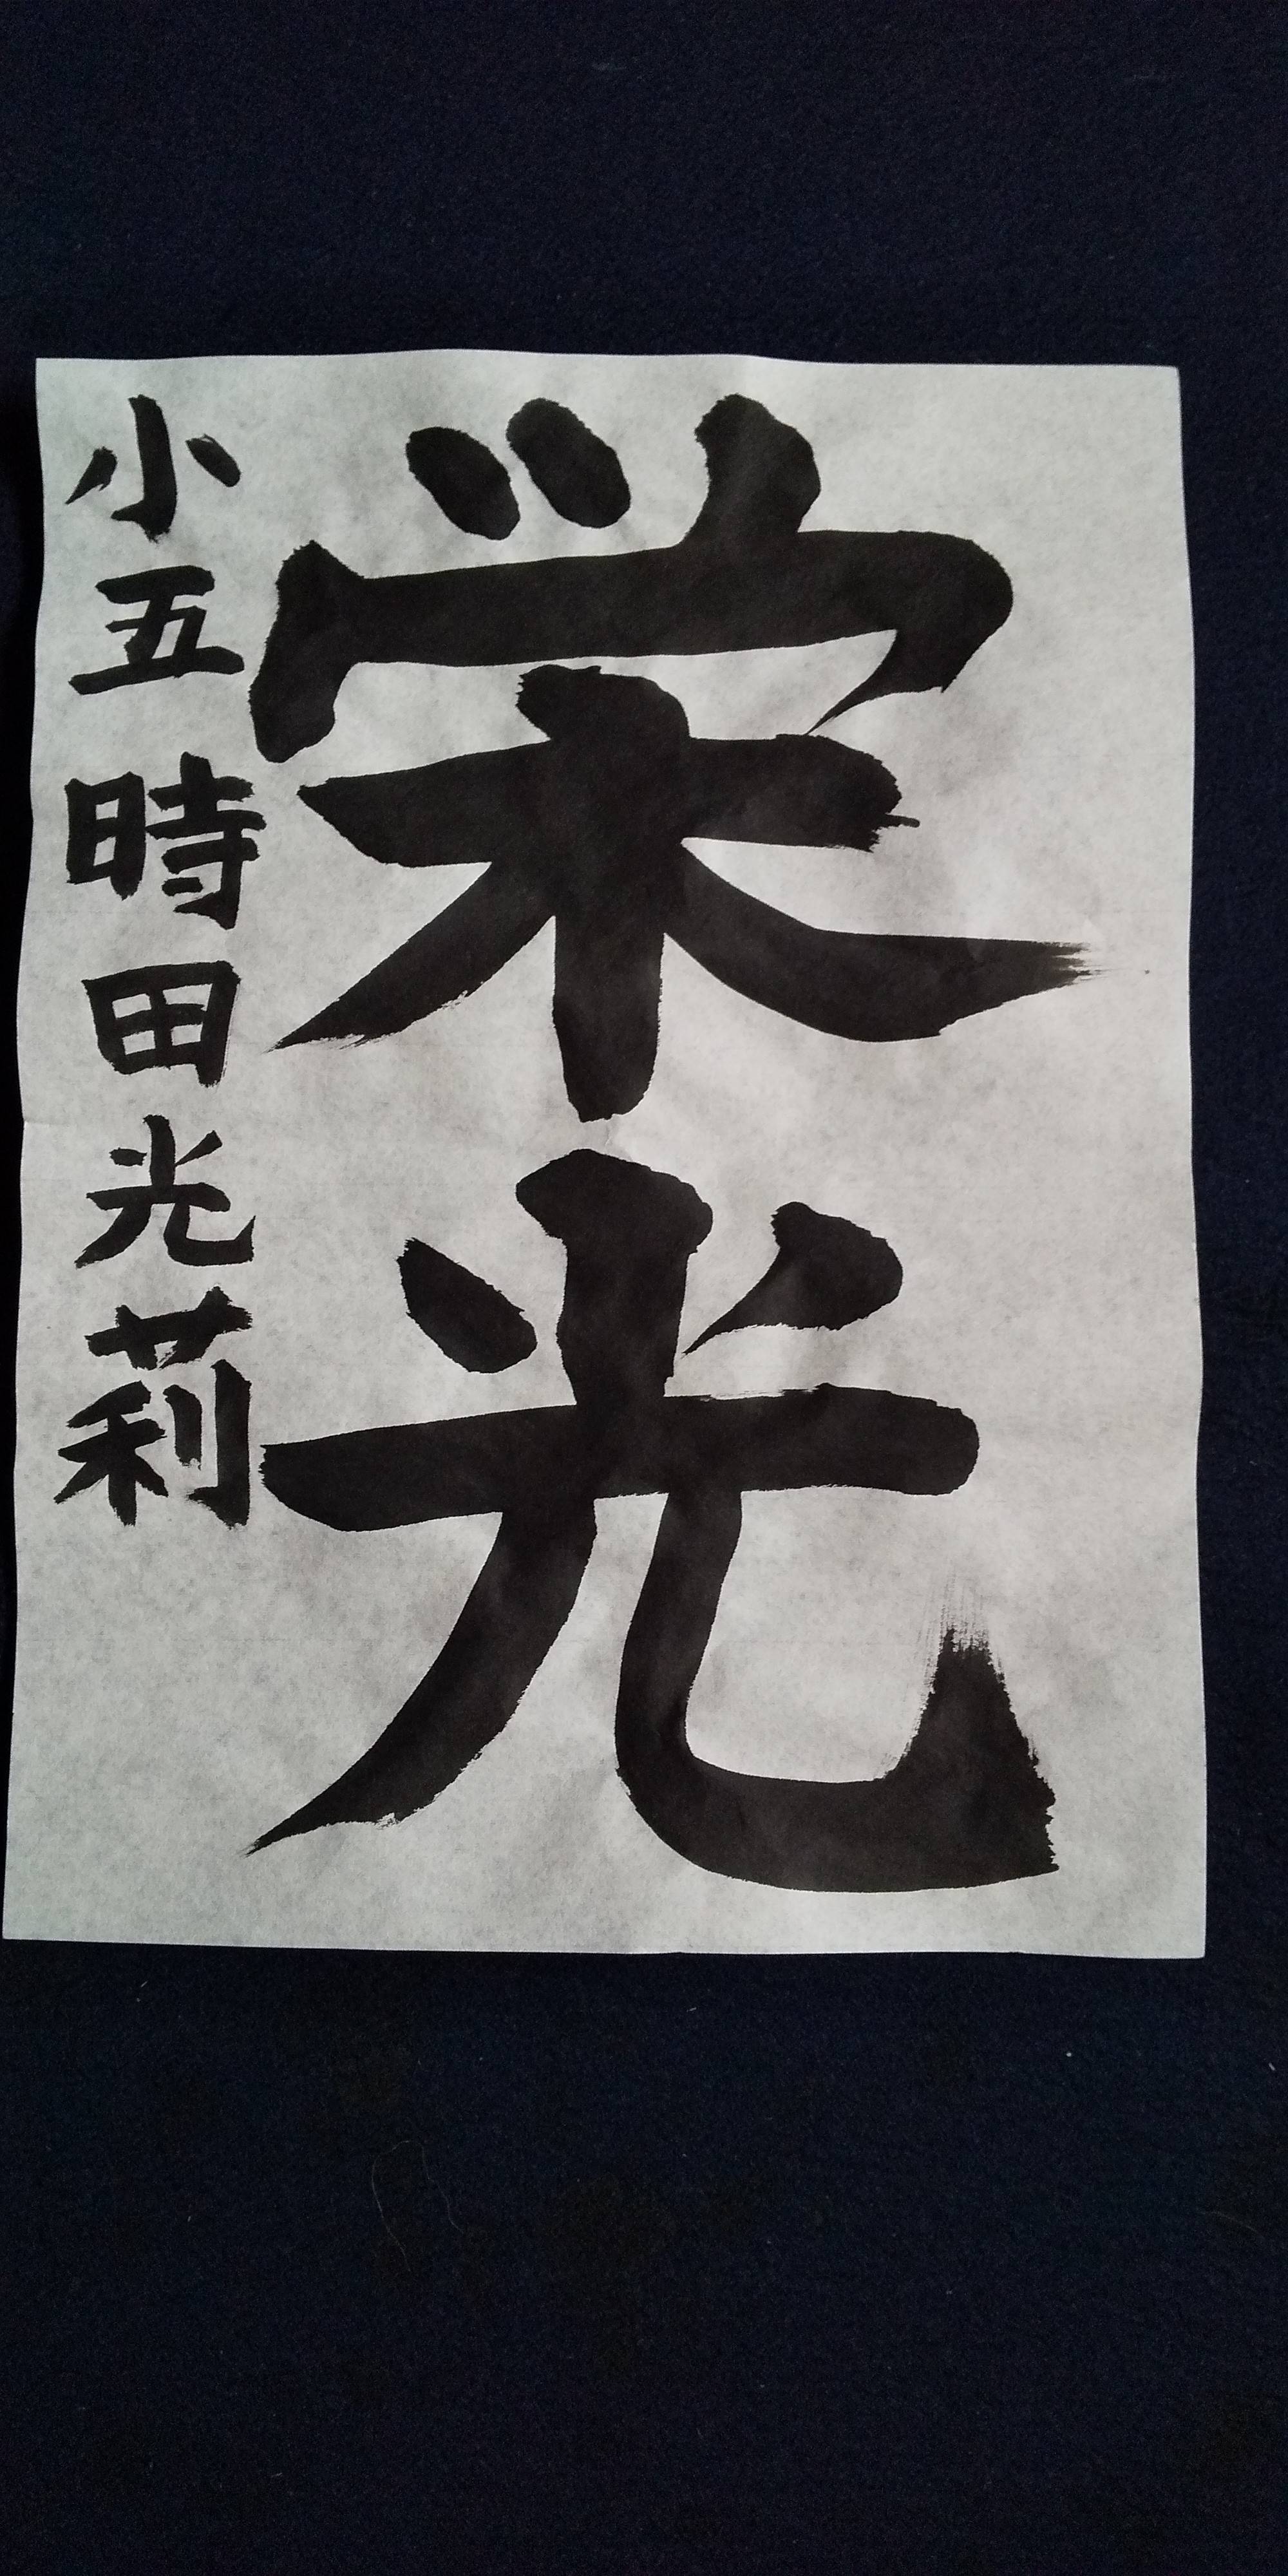 栄光
小五 時田光莉